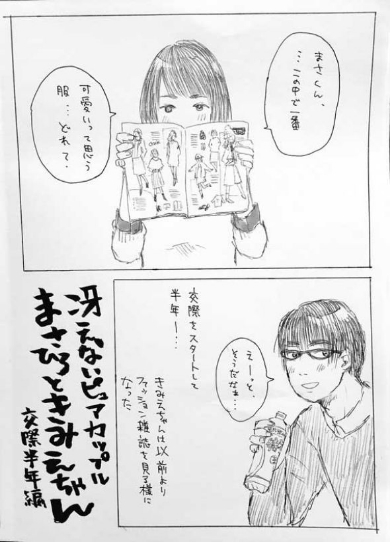 まさくん、
…この中で一番
可愛いって思う
服…どれて。
交際をスタートして
半年ー…
えーっと、
そうだなぁ…
きみえちゃんは以前より
ファッション雑誌を見る様に
なった
冴えないピュアカップル
まさひろときみえちゃん
交際半年編